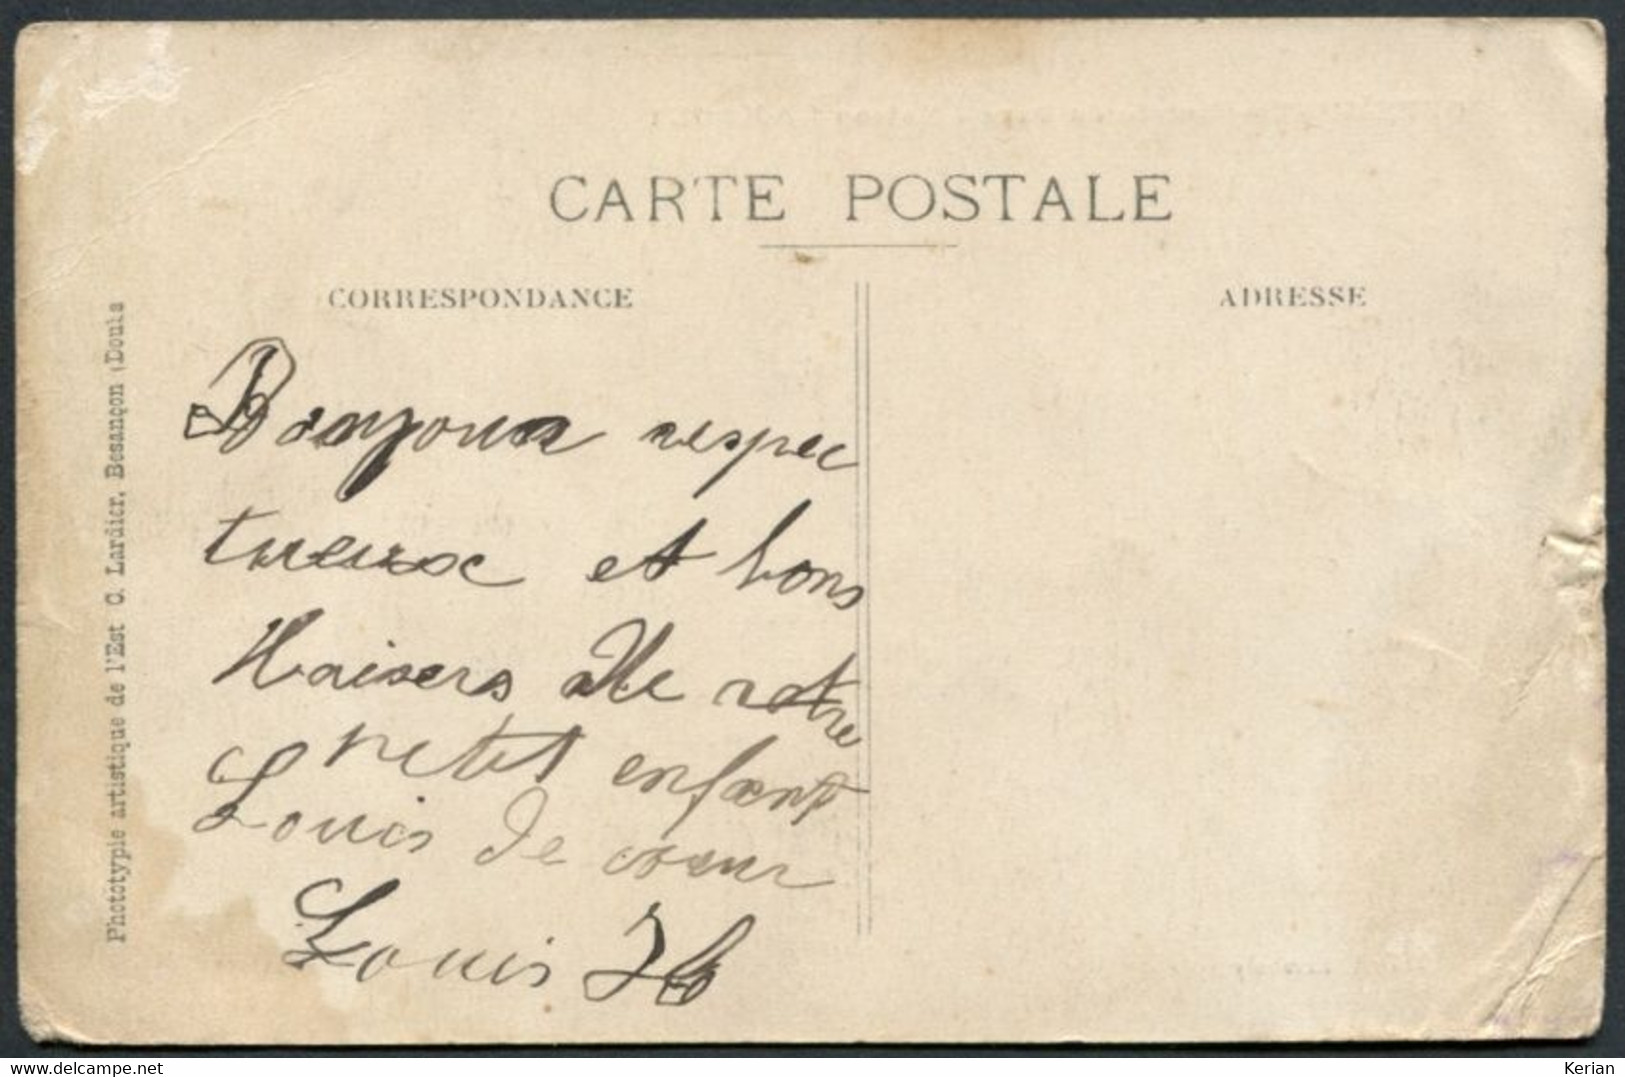 CARTE POSTALE
CORRESPONDANCE
ADRESSE
Bonjour respec
tueuse et bons
Baisers de votre
petit enfant
Louis de cœur
Louis
Phototypie artistique de l'Est C. Lardier, Besançon (Doubs
delcampe.net
Kerian